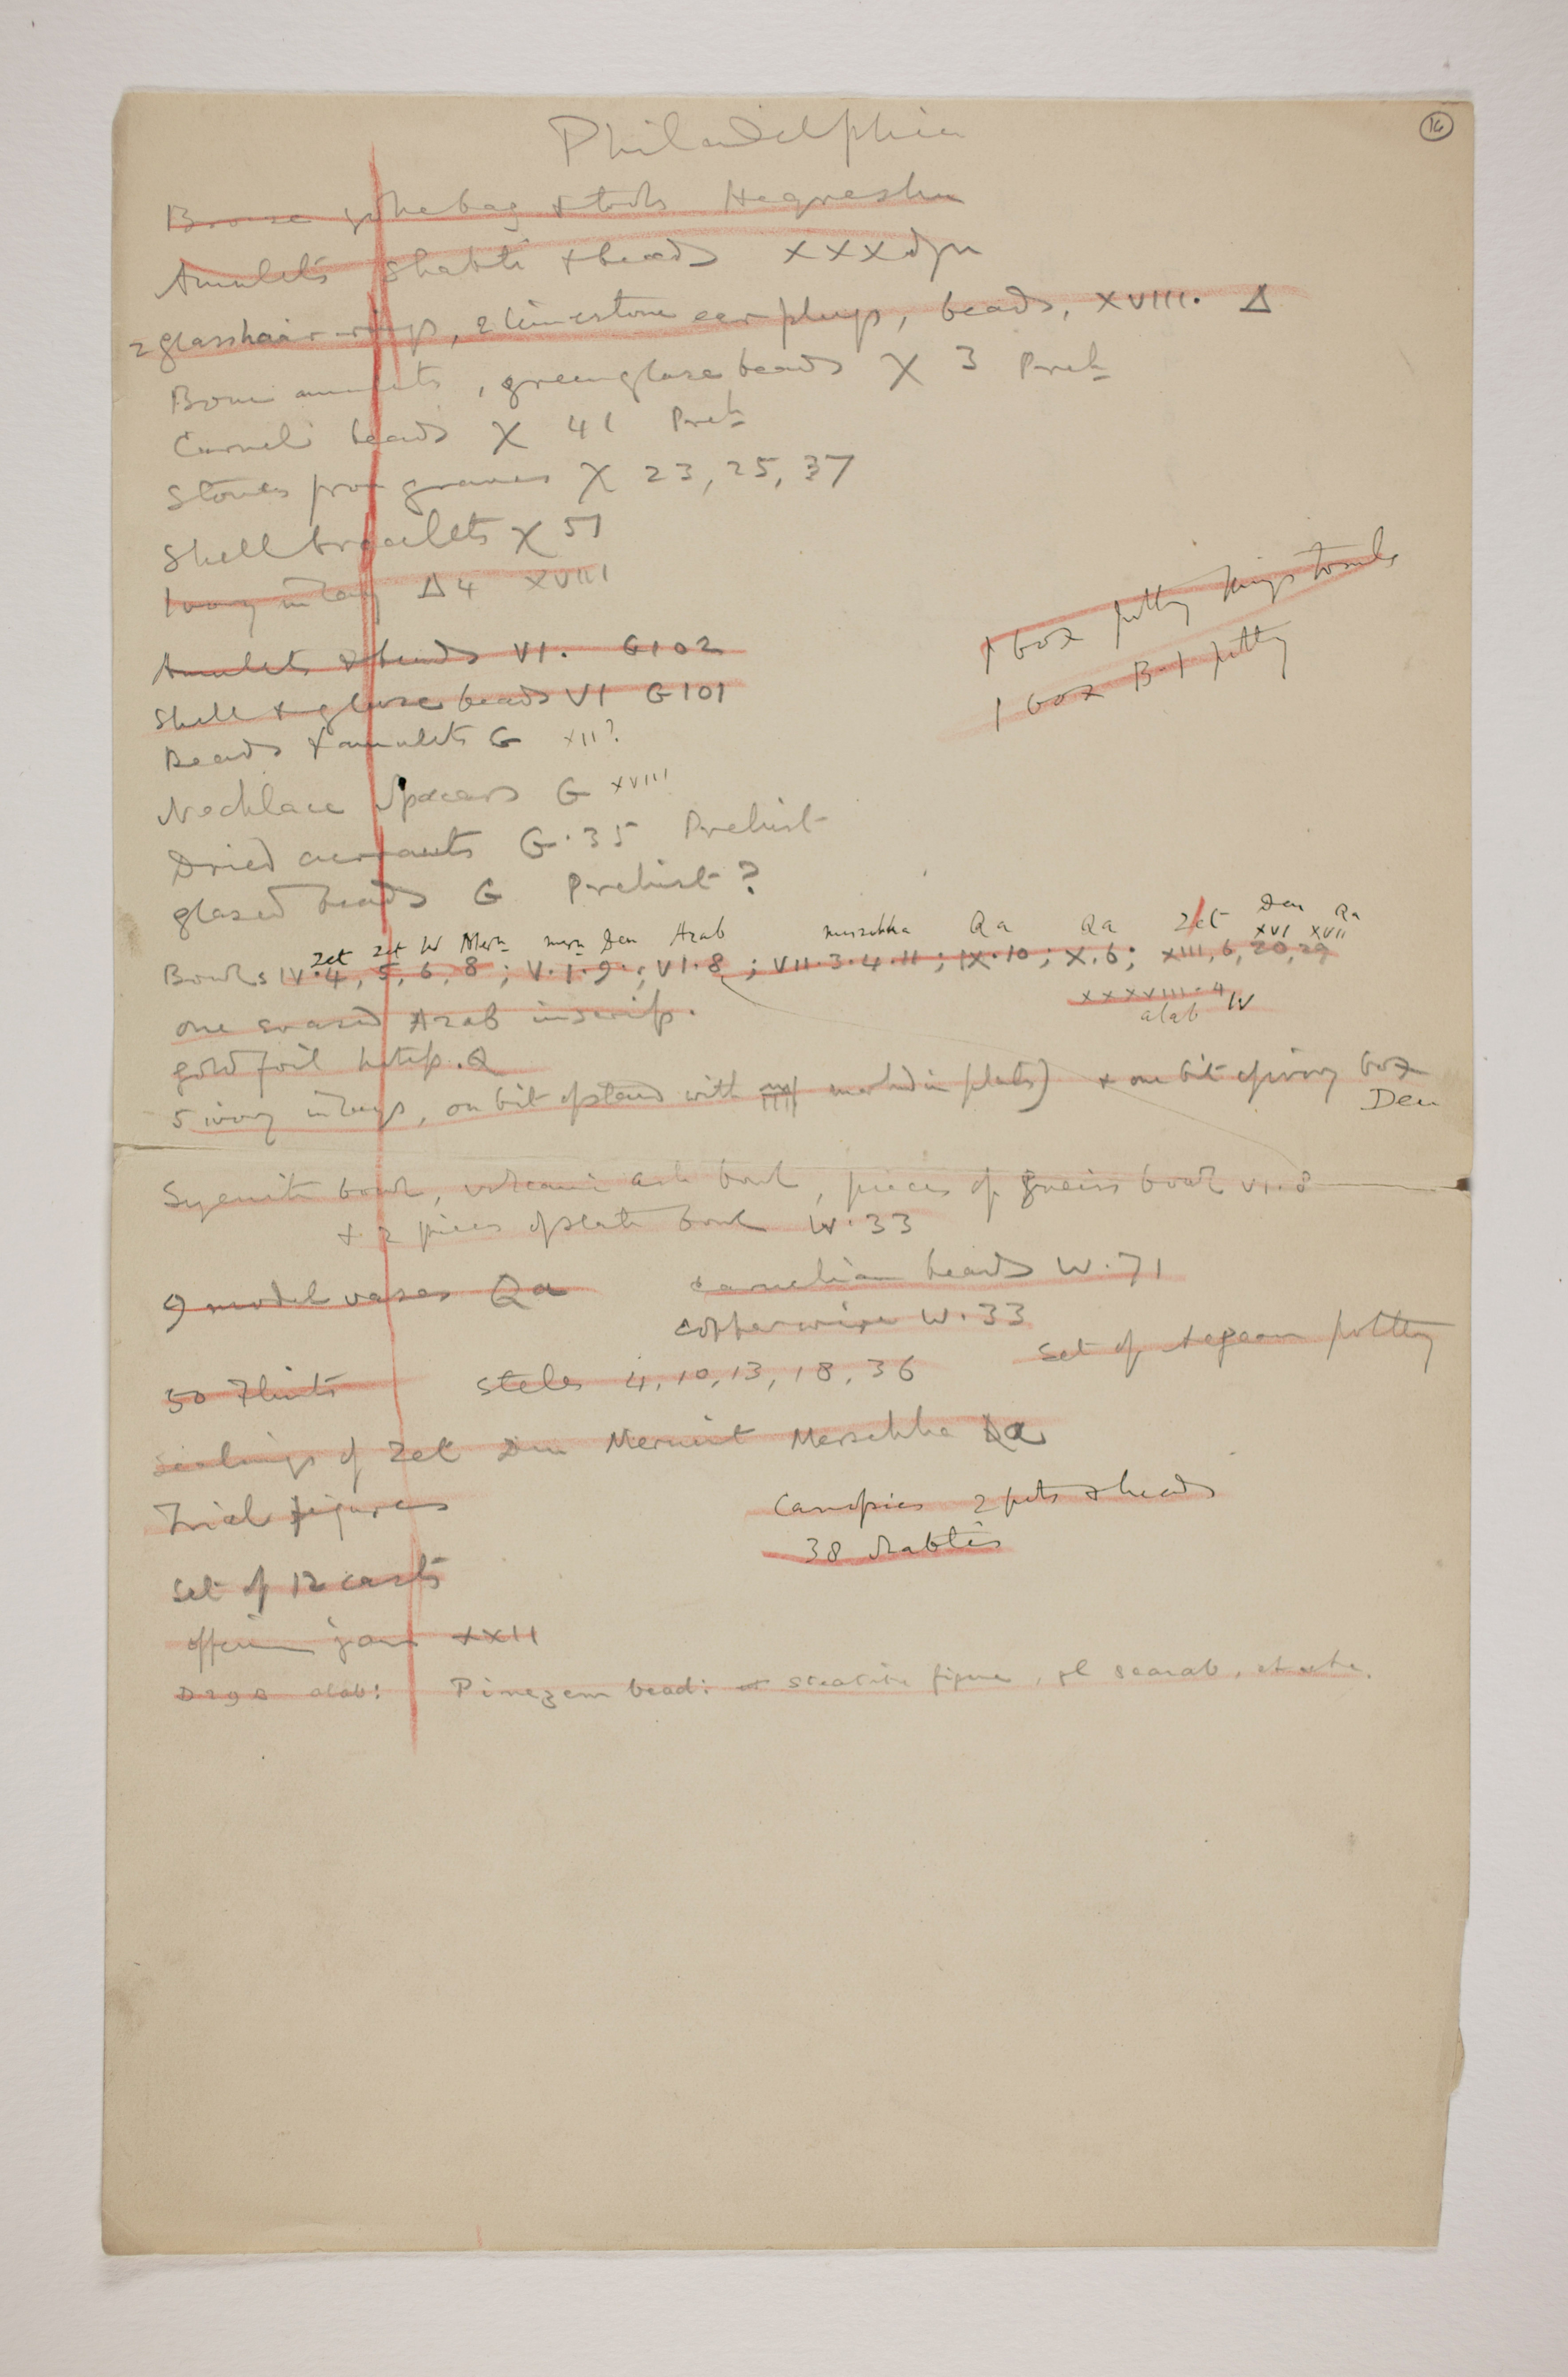 16
Philadelphia
Bronze bag & tools Heqreshu
Amulets Shabti & beads XXX dyn
2 glass hair-rings, 2 limestone ear plugs, beads, XVIII. Δ
Bone amulets, green glaze beads X 3 Preh
Carnel beads X 41 Preh
Stones from graves X 23, 25, 37
Shell bracelets X 51
Ivory inlay Δ4 XVIII
1 box potty kings tombs
1 box B-1 potty
Amulets & beads VI. G102
Shell & glaze beads VI G101
Beads & amulets G XII?
Necklace spacers G XVIII
Dried currants G.35 Prehist
glazed beads G Prehist?
Zet Zet W Mern mern Den Azab mersekha Qa Qa Zet Den XVI Qa XVII
Bowls IV.4, 5, 6, 8; V.1.9.; VI.8; VII.3.4.11; IX.10; X.6; XIII, 6, 20, 29
XXXVIII.4 W
alab
one erased Azab inscrip.
gold foil hetep. Q
5 ivory inlays, one bit of stand with marked in plates) & one bit of ivory box
Den
Syenite bowl, volcanic ash bowl, pieces of gneiss bowl VI.8
& 2 pieces of slate bowl W.33
9 model vases Qa carnelian beads W.71
copper wire W.33
Set of Aegean potty
50 Flints Steles 4, 10, 13, 18, 36
Sealings of Zet Den Merneit Mersekha Qa
Trial figures
Canopics 2 pots & heads
38 shabtis
Set of 12 casts
offering jars XXII
alab: Pinezem bead: steatite figure, gl scarab,